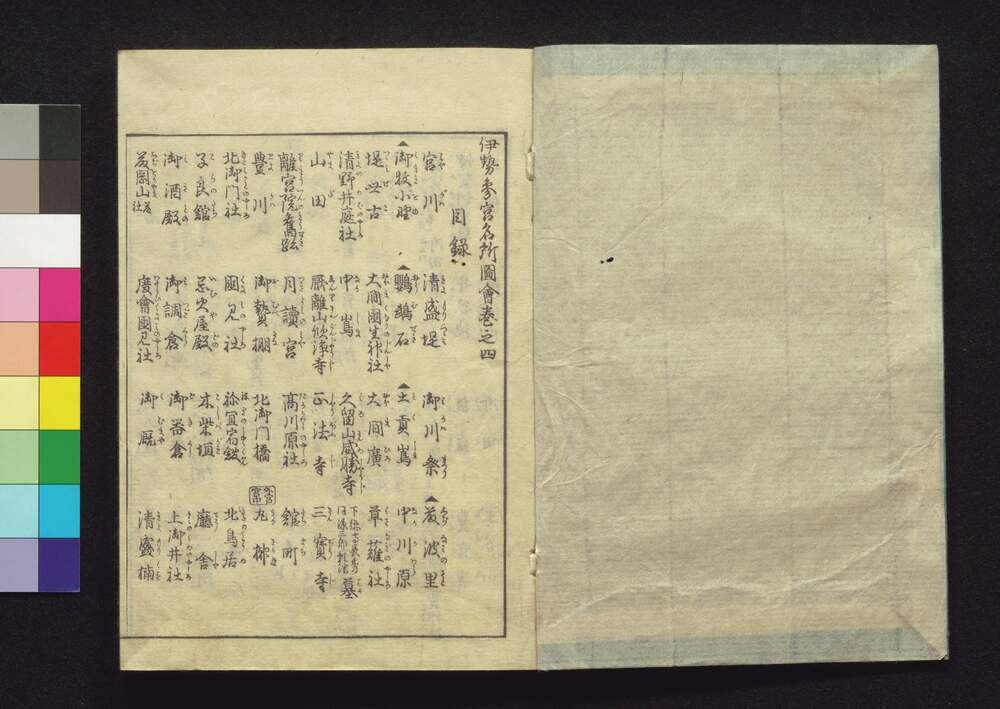 伊勢參宮名所圖會巻之四
目録
宮川 清盛堤 御川祭 菱波里
御牧小野 鸚鵡石 土貢嶌 中川原
堤世古 大間國生神社 大間廣 草薙社
清野井庭社 中嶌 久留山威勝寺
山田 正法寺 三寳寺
離宮院舊跡 月讀宮 高川原社 舘町
豐川 御贄棚 北御門橋 九栁
北御門社 國見社 祢宜宿舘 北鳥居
子良舘 忌火屋殿 木柴垣 廳舎
御酒殿 御調倉 御器倉 上御井社
度會國見社 御厩 清盛楠